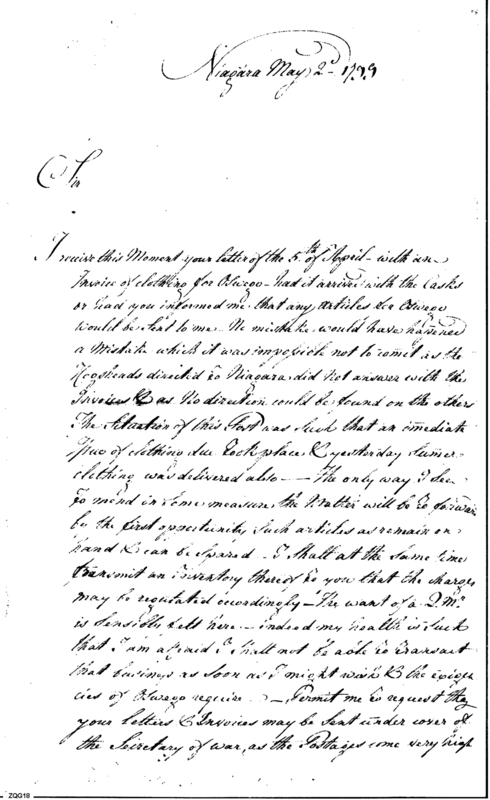 Niagara May 2d 1799
Sir
I receive this Moment your letter of the 5th of April - with an
Invoice of clothing for Oswego - had it arrived with the Casks
or had you informed me that any articles for Oswego
would be sent to me - No mistake would have happened
a Mistake which it was impossible not to comit as the
Hogsheads directed to Niagara did not answer with the
Invoices & as no direction could be found on the others
The Situation of this Post was such that an imediate
Issue of clothing due took place & yesterday Sumer
clothing was delivered also - The only way I see
to mend in some measure the Matter will be to forward
by the first opportunity such articles as remain on
hand & can be spared - I shall at the same time
transmit an inventory thereof to you that the charges
may be regulated accordingly - The want of a Q. Mr.
is sensibly felt here - indeed my health is such
that I am afraid I shall not be able to transact
that business as soon as I might wish & the exigen
cies of Oswego require - Permit me to request that
your letters & Invoices may be sent under cover of
the Secretary of war, as the Postages come very high
ZQG18